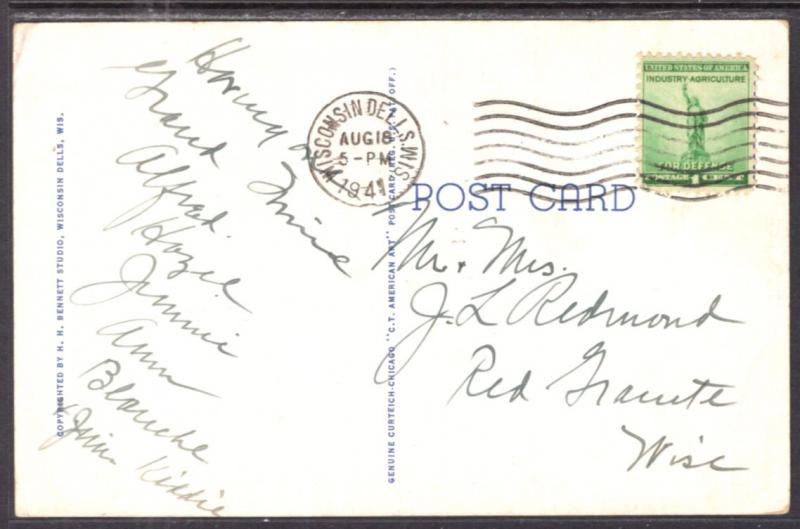 Having a
Grand Time
Alfred
Hazel
Jimmie
Ann
Blanche
Jim Kiddie
COPYRIGHTED BY H. H. BENNETT STUDIO, WISCONSIN DELLS, WIS.
GENUINE CURTEICH-CHICAGO "C.T. AMERICAN ART" POST CARD (REG. U.S. PAT. OFF.)
WISCONSIN DELLS, WIS.
AUG 18
5-PM
194
UNITED STATES OF AMERICA
INDUSTRY AGRICULTURE
FOR DEFENSE
POSTAGE 1 CENT
POST CARD
Mr. & Mrs.
J. L Redmond
Red Granite
Wisc